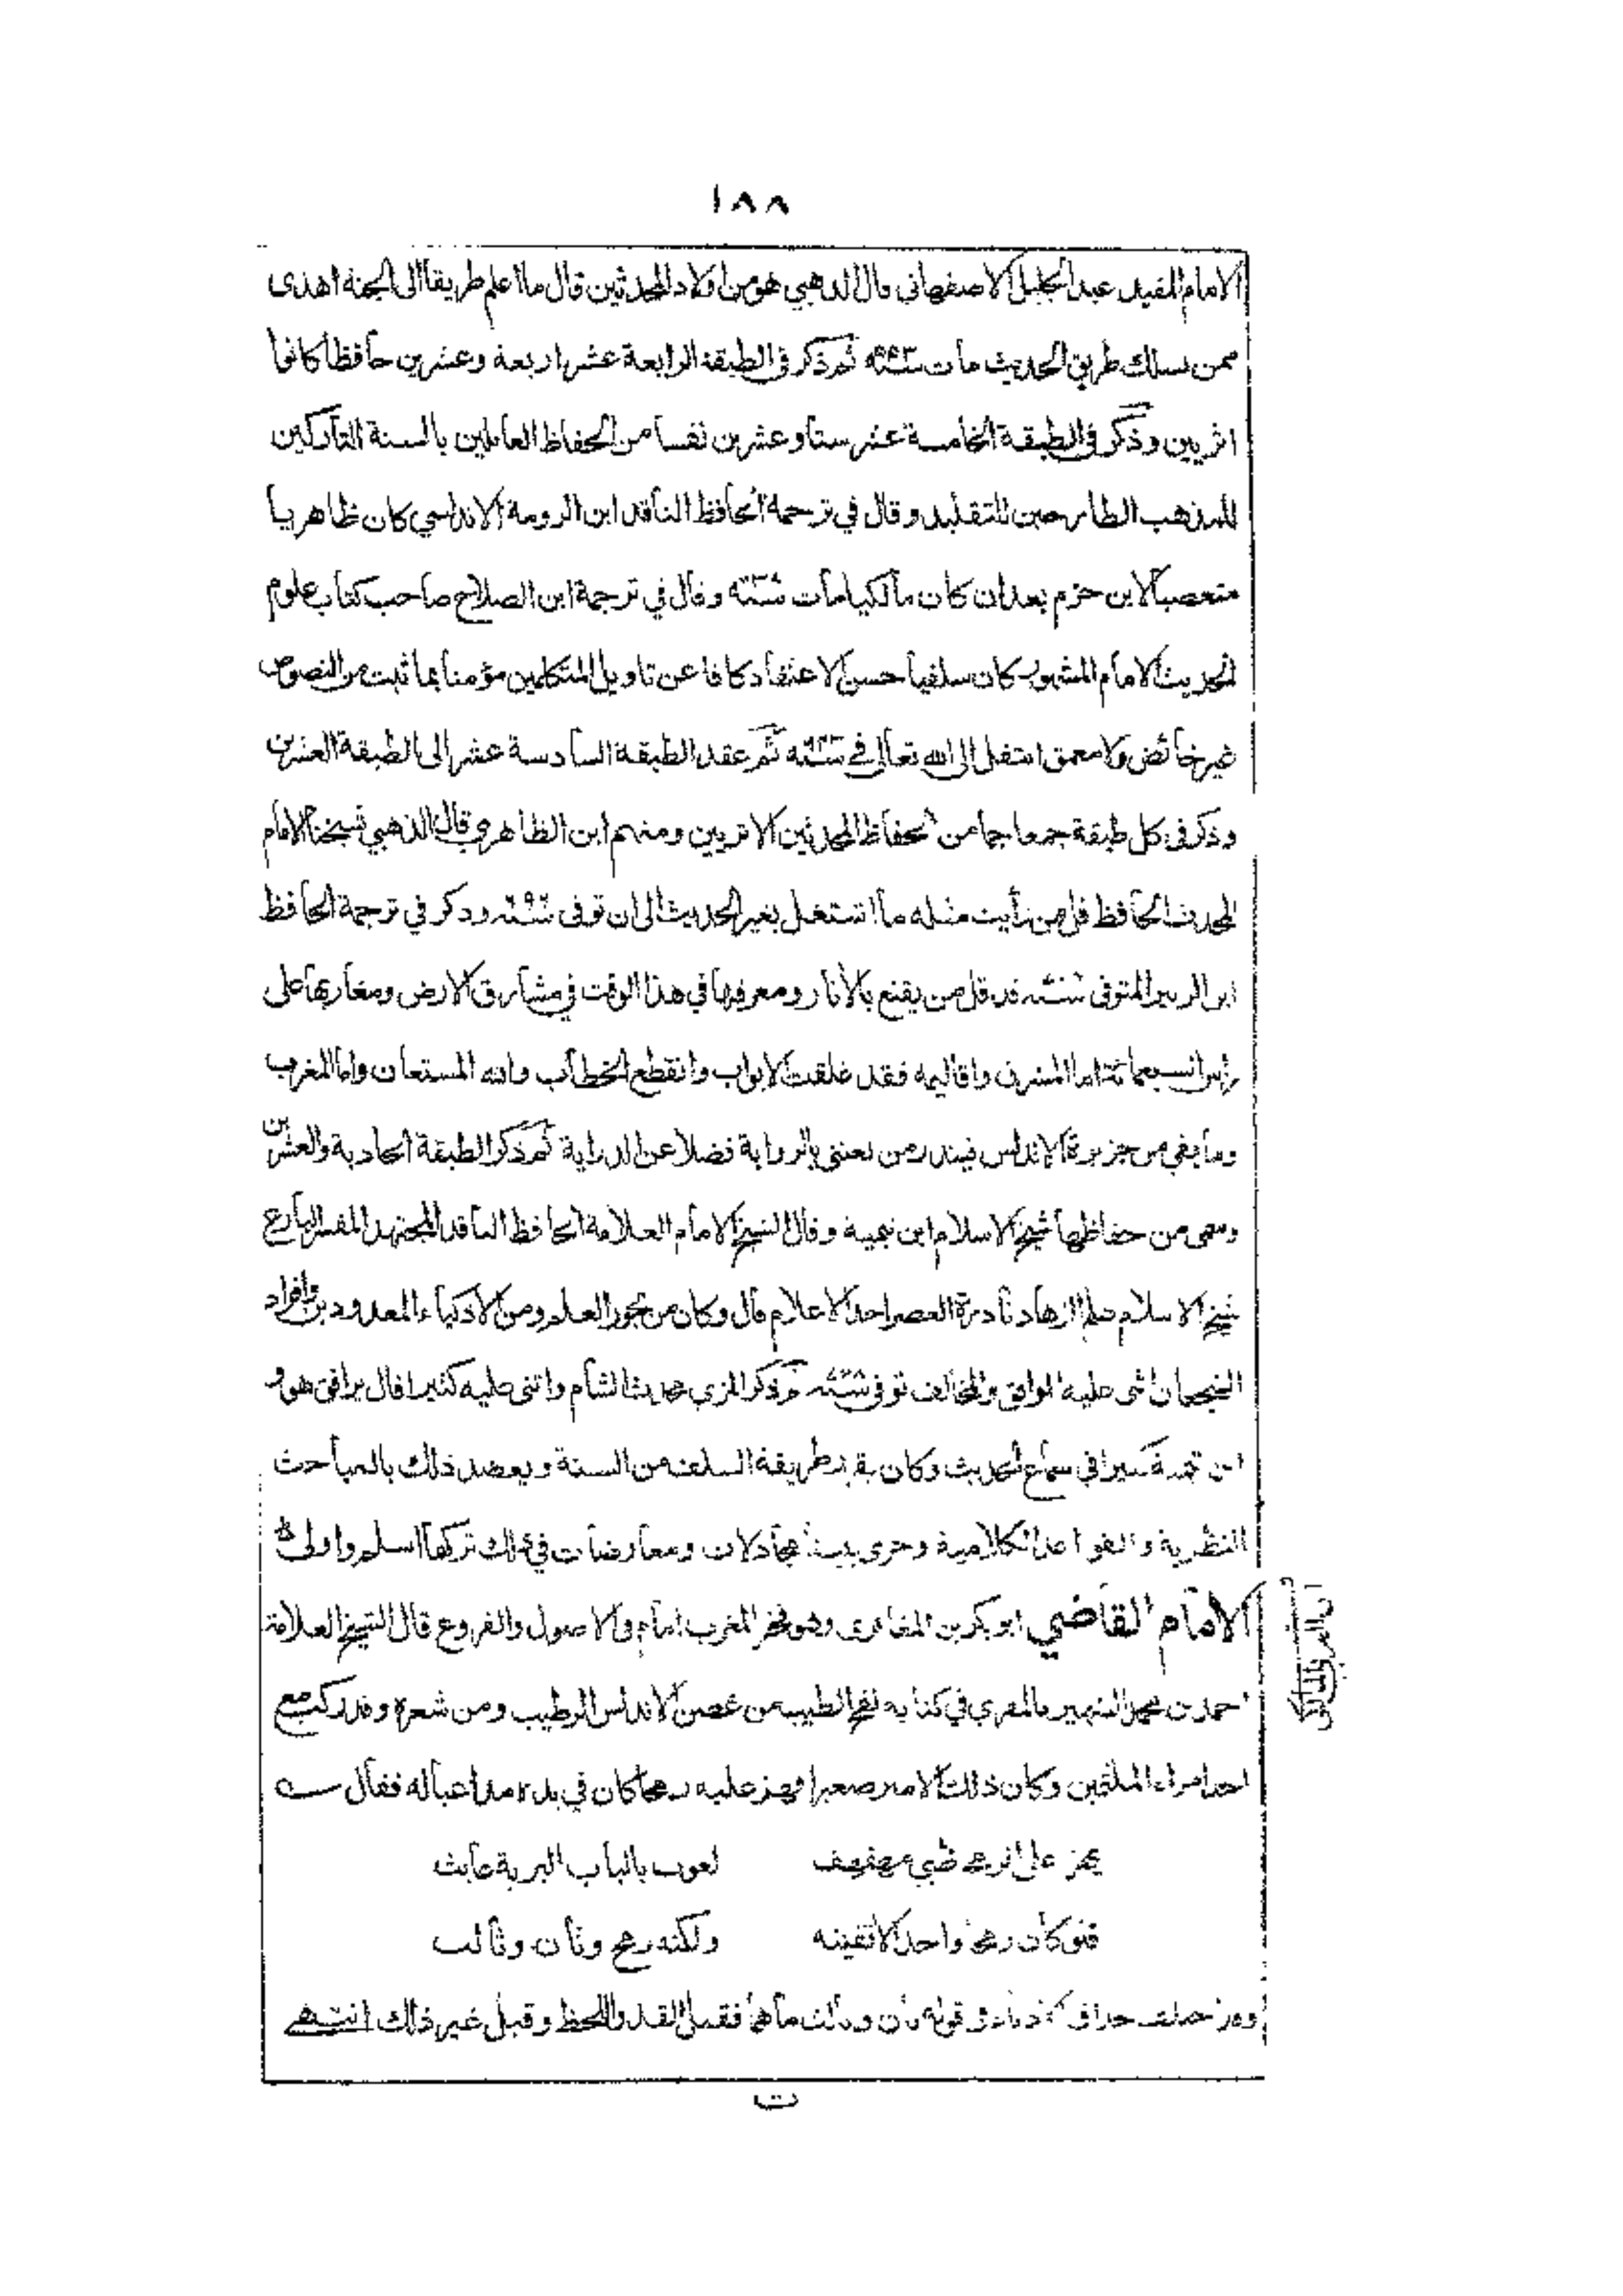 ١٨٨
الامام المفيد عبد الجليل الاصفهانى قال الذهبي هو من اولاد المحدثين قال ما اعلم طريقا الى الجنة اهدى
ممن يسلك طريق الحديث مات سنه ثم ذكر فى الطبقة الرابعة عشر اربعة وعشرين حافظا كانوا
اثريين وذكر فى الطبقة الخامسة عشر ستا وعشرين نفسا من الحفاظ العاملين بالسنة التاركين
للمذهب الطارحين للتقليد وقال في ترجمة الحافظ الناقد ابن الرومية الاندلسي كان ظاهريا
متعصبا لابن حزم بعد ان كان مالكيا مات سنه وقال في ترجمة ابن الصلاح صاحب كتاب علوم
الحديث الامام المشهور كان سلفيا حسن الاعتقاد كافا عن تاويل المتكلمين مؤمنا بما ثبت من النصوص
غير خائض ولا معمق انتقل الى الله تعالى في سنه ثم عقد الطبقة السادسة عشر الى الطبقة العشرين
وذكر فى كل طبقة جمعا جما من الحفاظ المحدثين الاثريين ومنهم ابن الظاهري قال الذهبي شيخنا الامام
المحدث الحافظ قل من رأيت مثله ما اشتغل بغير الحديث الى ان توفى سنه وذكر في ترجمة الحافظ
ابن الزبير المتوفى سنه قد قل من يقنع بالآثار ومعرفها في هذا الوقت في مشارق الارض ومغاربها على
راس السبعمائة اما المشرق واقاليمه فقد غلقت الابواب وانقطع الخطاب والله المستعان واما المغرب
وما بقي من جزيرة الاندلس فيندر من يعتنى بالرواية فضلا عن الدراية ثم ذكر الطبقة الحادية والعشرين
وسمى من حفاظها شيخ الاسلام ابن تيمية وقال الشيخ الامام العلامة الحافظ الناقد المجتهد المفسر البارع
شيخ الاسلام علم الزهاد نادرة العصر احد الاعلام قال وكان من بحور العلم ومن الاذكياء المعدودين وافراد
الشجعان اثنى عليه الموافق والمخالف توفى سنه ثم ذكر المزي محدث الشام واثنى عليه كثيرا قال يرافق هو و
ابن تيمية كثيرا في سماع الحديث وكان يقرر طريقة السلف من السنة ويعضد ذلك بالمباحث
النظرية والقواعد الكلامية وجرى بيننا مجادلات ومعارضات في ذلك تركها اسلم واولى
الامام القاضي ابو بكر بن المغافرى وهو فخر المغرب امام فى الاصول والفروع قال الشيخ العلامة
احمد بن محمد الشهير بالمقري في كتابه نفح الطيب من غصن الاندلس الرطيب ومن شعره وقد ركب مع
احد امراء الملثمين وكان ذلك الامير صغيرا فهز عليه رمحا كان في يده مداعبا له فقال
يهز على الرمح ظبي مهفهف لعوب بالباب البرية عابث
فلو كان رمحا واحدا لاتقيته ولكنه رمح وثان وثالث
حذاق الادباء فى قوله ثان وثالث ما هما فقيل القد واللحظ وقيل غير ذلك انتهى
ابن العربي المالكي
ت